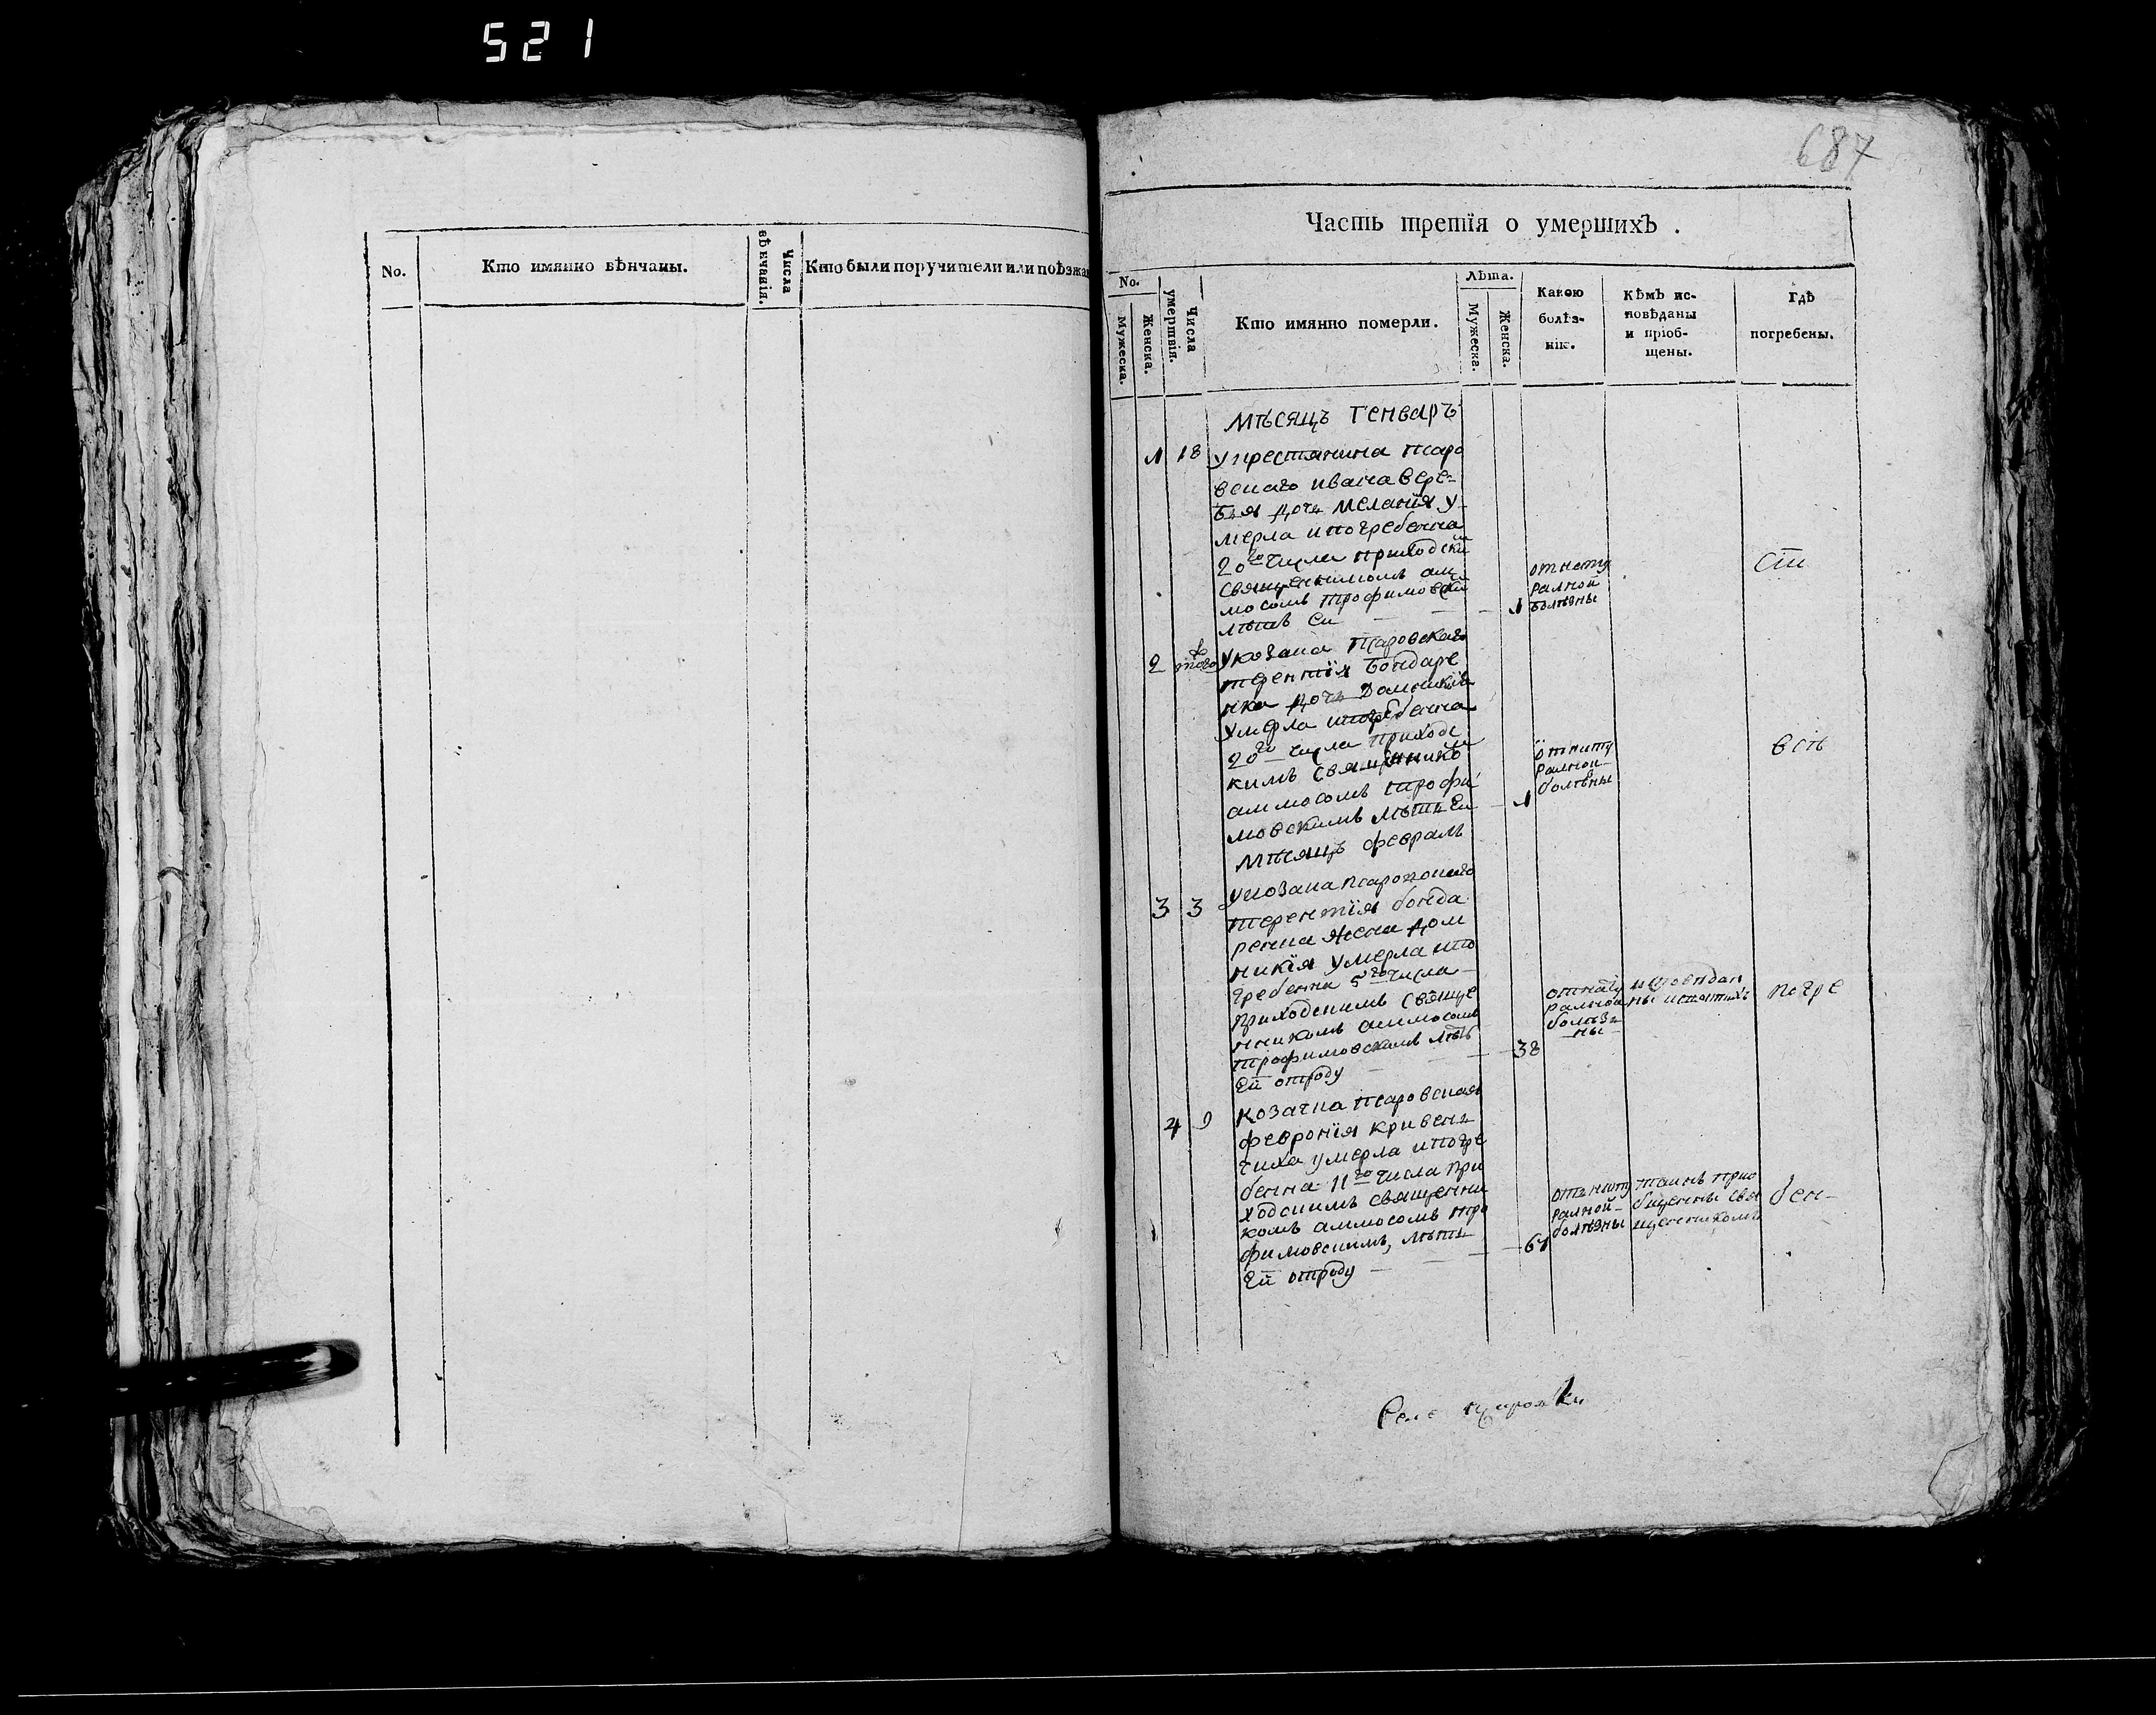 521
No.
Кто имянно вѣнчаны.
Числа вѣнчанія.
Кто были поручители или поѣзжа
687
Часть третїя о умершихЪ .
No.
Мужеска.
Женска.
Числа умертвія.
Кто имянно померли.
Лѣта.
Мужеска.
Женска.
Какою
болѣз-
нію.
КѣмЪ ис-
повѣданы
и пріоб-
щены.
Гдѣ
погребены.
мѣсяцъ Генваръ
1 18 у крестянина псаро
вскаго ивана вере-
бя дочь меланїя у-
мерла и погребенна
20го числа приходски
священникомъ ам
мосомъ трофимовски
лѣтъ ей 1
от нату
ралной
болѣзны
сти
2 того у козака псаровскаго
терентїя бондаре
нка дочь домникїя
умерла и погребенна
20го числа приходс
кимъ священнико
аммосомъ трофи
мовскимъ лѣтъ ей 1
от нату
ралной
болѣзны
Мѣсяцъ февраль
3 3 у козака псаровскаго
терентїя бонда
ренка жена дом
никїя умерла и по
гребенна 5го числа
приходскимъ свяще
нникомъ аммосомъ
трофимовскимъ лѣтъ
ей отроду 38
от нату
ралной
болѣз
ны
погре
4 9 козачка псаровская
феврония кривень
чиха умерла и погре
бенна 11го числа при
ходскимъ священни
комъ аммосомъ тро
фимовскимъ, лѣтъ
ей отроду 61
отъ нату
ралной
болѣзны
таинъ прио
бщенны свя
щенникомъ
бен-